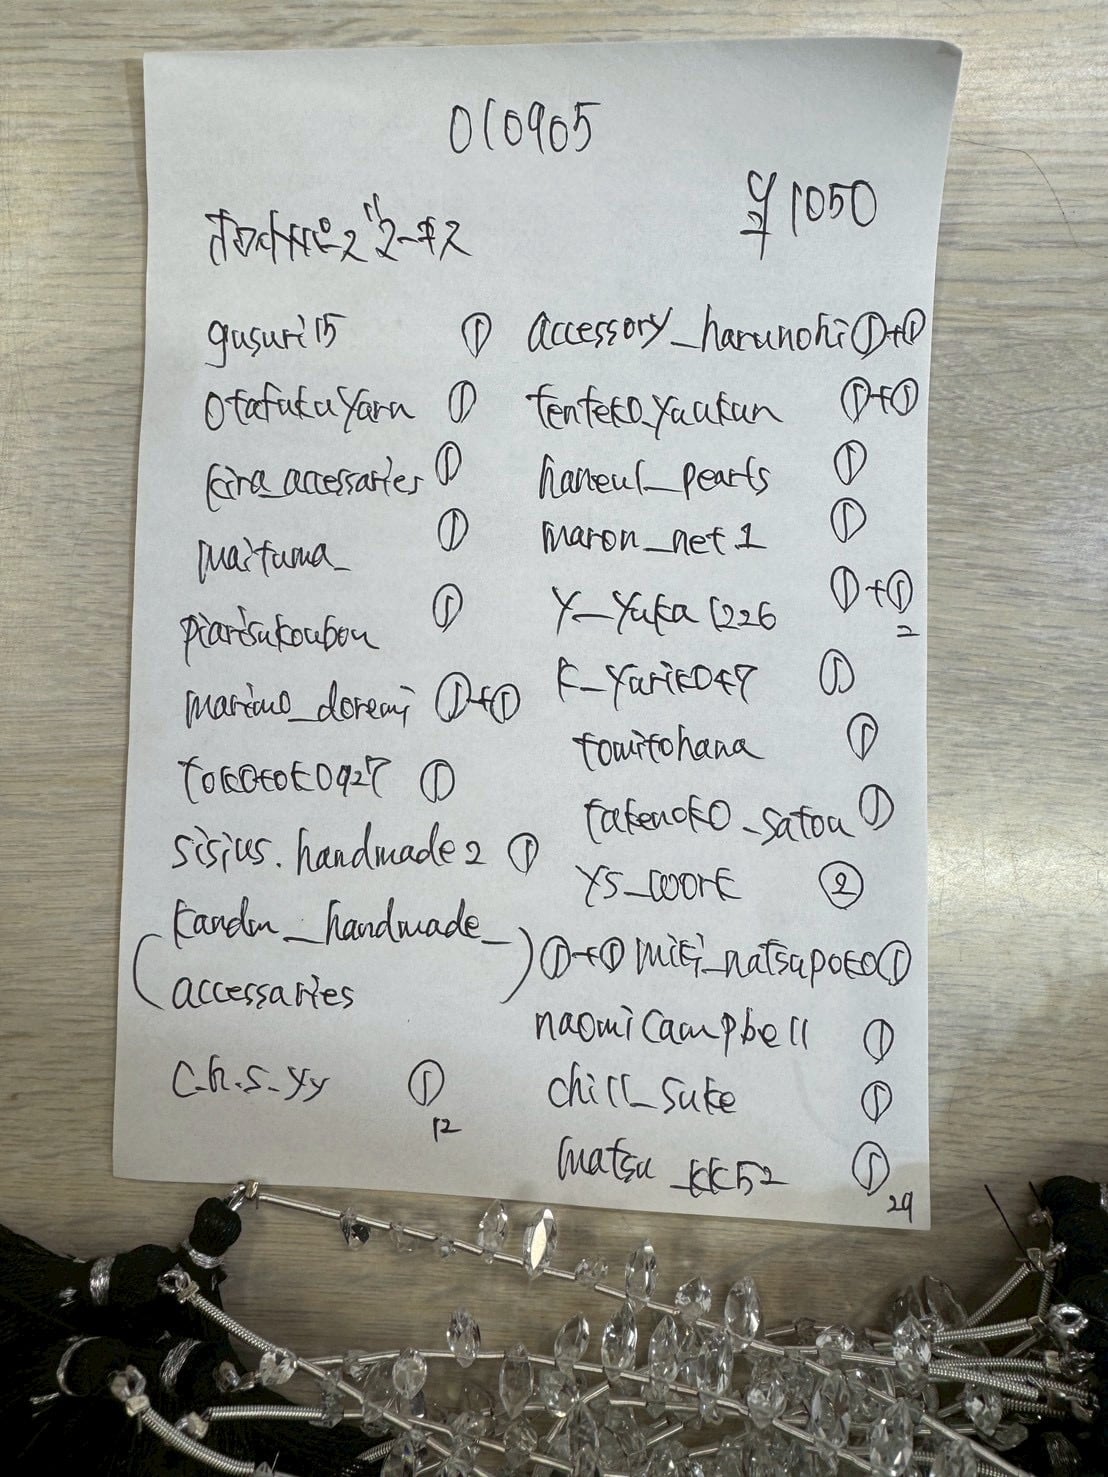 010905
ホワイトトパーズ マーキス
卸 1050
gusuri15 ①
otafukuyarn ①
kira_accessaries ①
maituma_ ①
piarisukoubou ①
marimo_doremi ①+①
tokotoko927 ①
sisius.handmade2 ①
(kandm_handmade_
accessaries) ①+①
c.h.s_yy ①
12
accessory_harunohi ①+①
tenteko_yuukun ①+①
haneul_pearls ①
maron_net1 ①
y_yuka1226 ①+①
2
k_yuriko47 ①
tomitohana ①
takenoko_satou ①
ys_work ②
miki_natsupoko ①
naomicampbell ①
chill_suke ①
matsu_kk52 ①
29